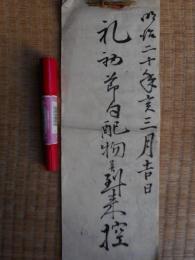 明治二十年亥三月吉日
礼初節句配物并到来控